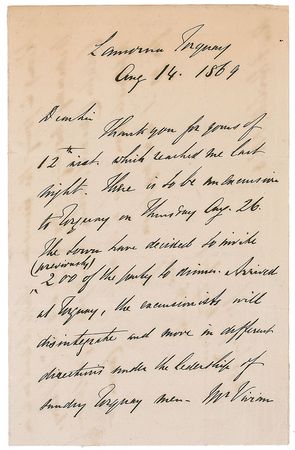 Lamorna Torquay
Aug 14. 1869
Dear Sir
Thank you for yours of
12th inst. which reached me last
night. There is to be an excursion
to Torquay on Thursday Aug. 26.
The town have decided to invite
(previously)
200 of the party to dinner. Arrived
at Torquay, the excursionists will
disintegrate and move in different
directions under the leadership of
sundry Torquay men - Mr Vivian